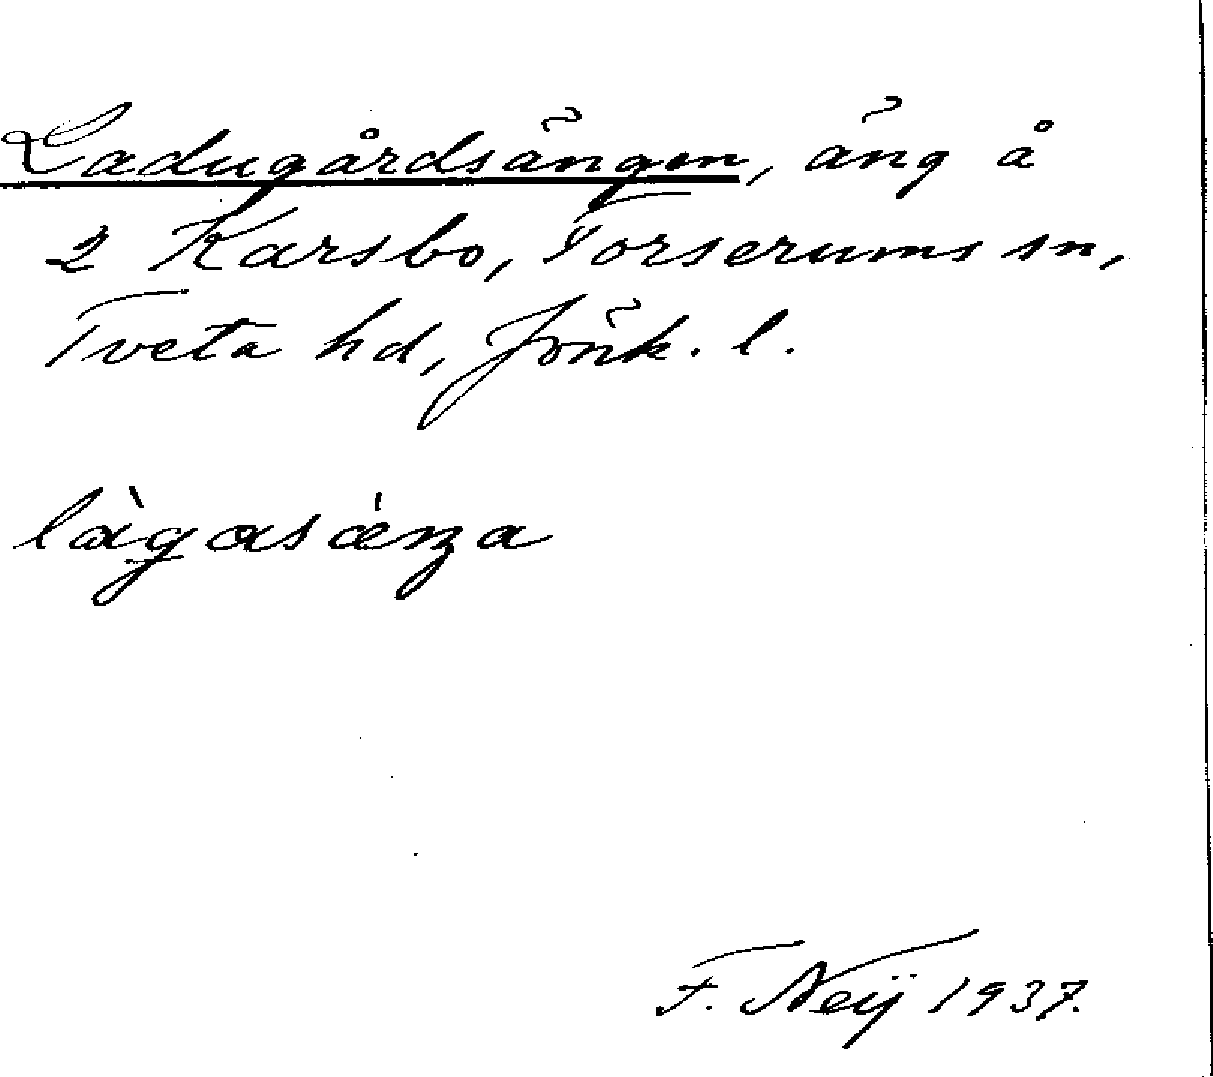 Ladugårdsängen, äng å
2 Karsbo, Forserums sn,
Tveta hd, Jönk. l.
làgasǽŋa
F. Neij 1937.